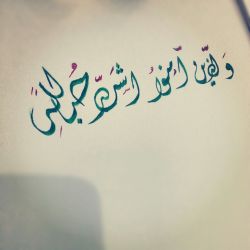 وَالَّذِينَ آمَنُوا أَشَدُّ حُبًّا لِلَّهِ